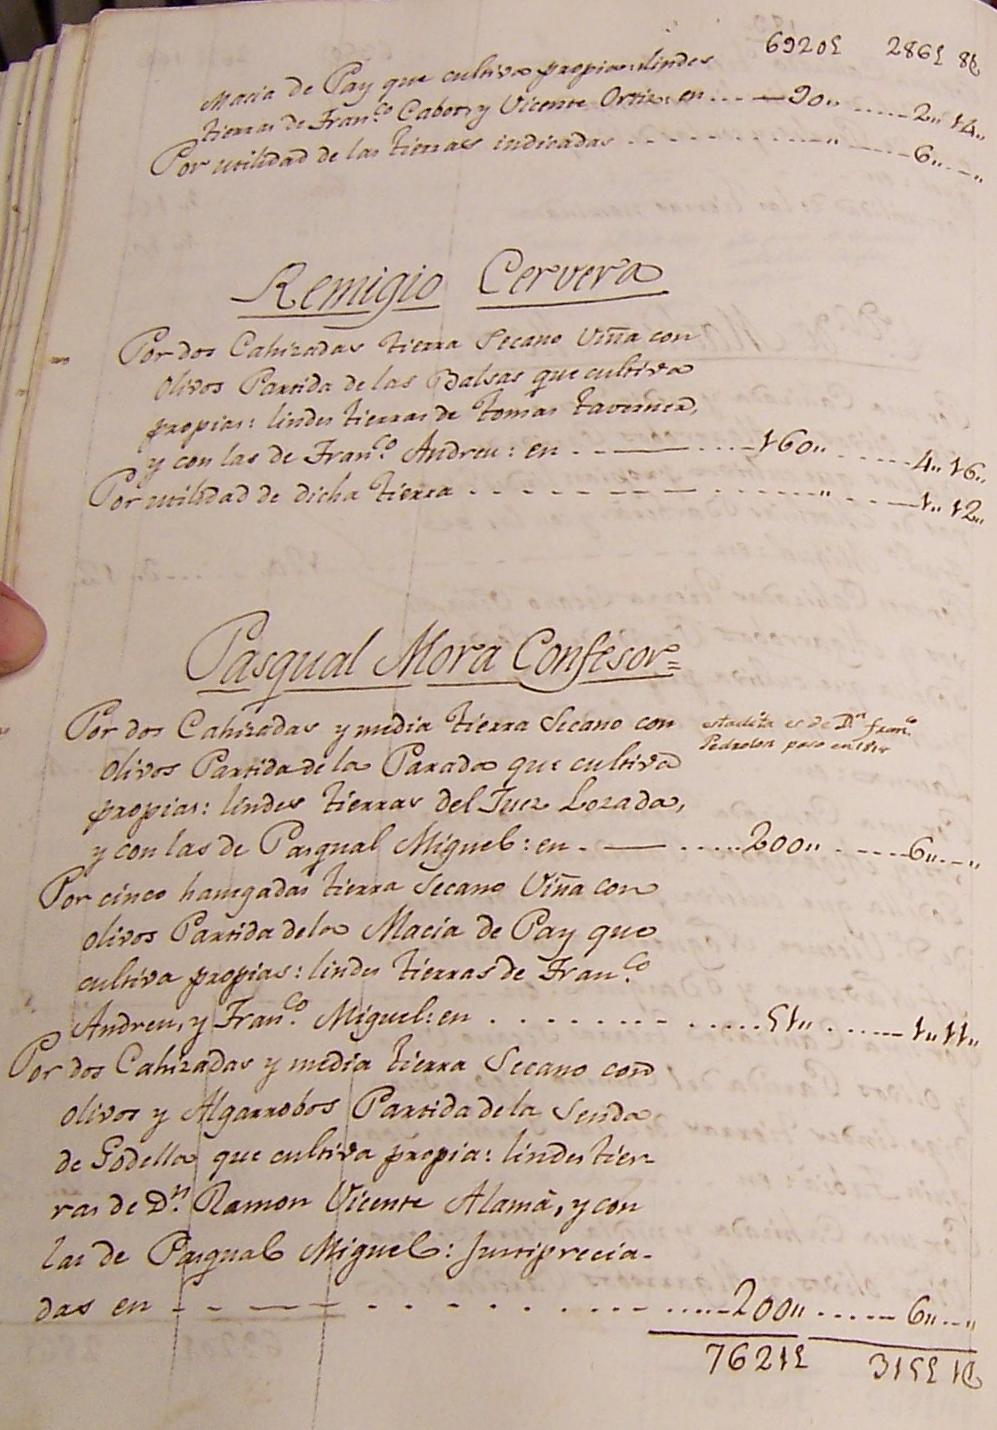 6920£ 286£ 18
Macia de Pay que cultiva propias: lindes
tierras de Fran.co Cabot, y Vicente Ortiz: en ... — 90,, ..... 2,, 14,,
Por utilidad de las tierras indicadas ......... ,, ..... 6,, .. ,,
Remigio Cervera
Por dos Cahizadas tierra Secano Viña con
olivos Partida de las Balsas que cultiva
propias: lindes tierras de tomas taverner,
y con las de Fran.co Andreu: en .. — ... 160,, ..... 4,, 16,,
Por utilidad de dicha tierra ......... ,, ... — 1,, 12,,
Pasqual Mora Confesor =
Por dos Cahizadas y media tierra Secano con
esta es de Dn Fran.co
olivos Partida de la Parada que cultiva
Pedrolon paso en
propias: lindes tierras del Juez Lozada,
y con las de Pasqual Miguel: en . — ..... 200,, ..... 6,, .. ,,
Por cinco hanegadas tierra Secano Viña con
olivos Partida de la Macia de Pay que
cultiva propias: lindes tierras de Fran.co
Andreu, y Fran.co Miguel: en ............ 51,, ..... 1,, 11,,
Por dos Cahizadas y media tierra Secano con
olivos y Algarrobos Partida de la Senda
de Godella que cultiva propia: lindes tier-
ras de Dn. Ramon Vicente Alamá, y con
las de Pasqual Miguel: Justiprecia-
das en - - — ............ 200,, ..... 6,, ... ,,
7621£ 315£ 1